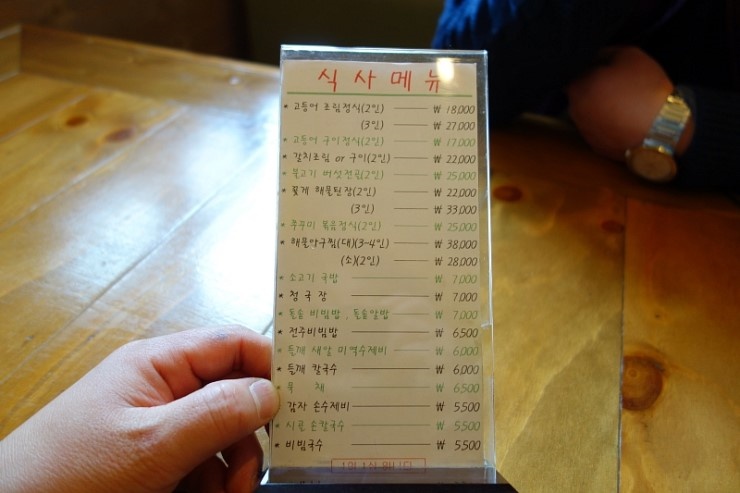 식사메뉴
* 고등어 조림정식(2인) ₩ 18,000
(3인) ₩ 27,000
* 고등어 구이정식(2인) ₩ 17,000
* 갈치조림 or 구이(2인) ₩ 22,000
* 불고기 버섯전골(2인) ₩ 25,000
* 꽃게 해물된장(2인) ₩ 22,000
(3인) ₩ 33,000
* 쭈꾸미 볶음정식(2인) ₩ 25,000
* 해물아구찜(대)(3~4인) ₩ 38,000
(소)(2인) ₩ 28,000
* 소고기 국밥 ₩ 7,000
* 청국장 ₩ 7,000
* 돌솥 비빔밥, 돌솥알밥 ₩ 7,000
* 전주비빔밥 ₩ 6,500
* 들깨 새알 미역수제비 ₩ 6,000
* 들깨 칼국수 ₩ 6,000
* 묵 채 ₩ 6,500
감자 손수제비 ₩ 5,500
* 시골 손칼국수 ₩ 5,500
* 비빔국수 ₩ 5,500
1인 1식 입니다